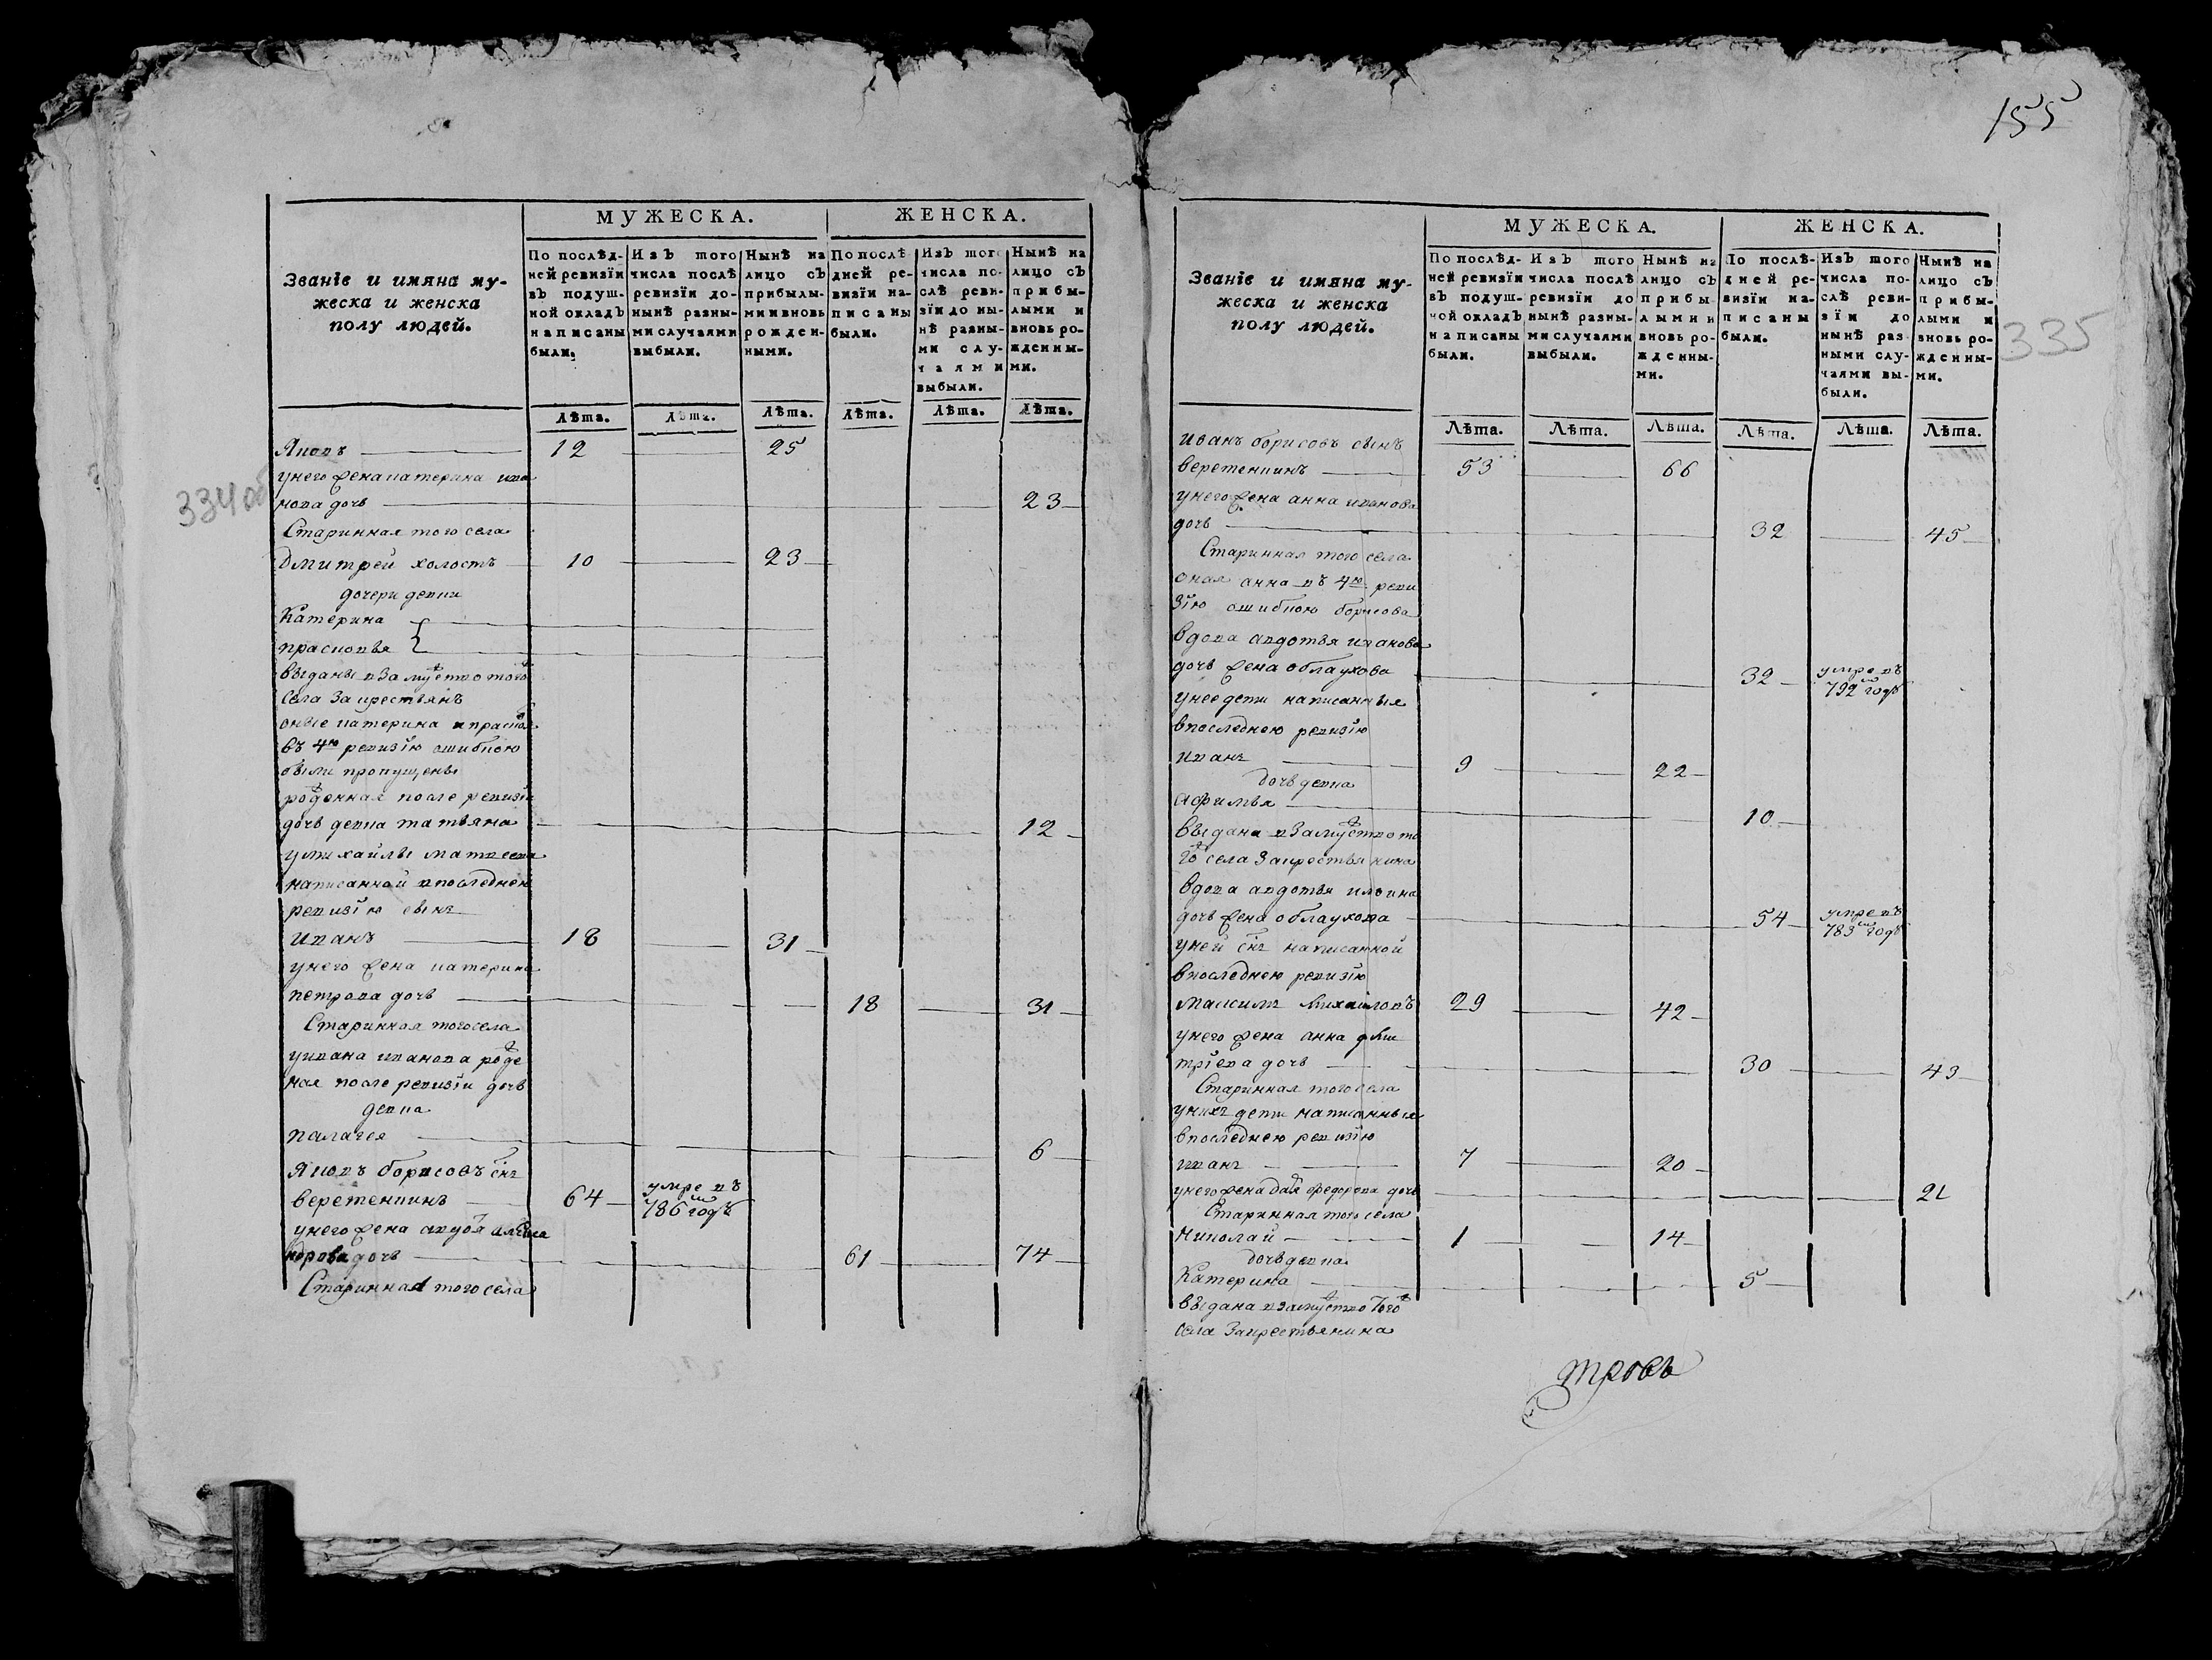 155
334об
335
Званіе и имяна му-
жеска и женска
полу людей.
МУЖЕСКА.
ЖЕНСКА.
По послѣд-
ней ревизїи
въ подуш-
ной окладъ
написаны
были.
Изъ того
числа послѣ
ревизїи до-
нынѣ разны-
ми случаями
выбыли.
Нынѣ на
лицо съ
прибылы-
ми и вновь
рожден-
ными.
По послѣ
дней ре-
визїи на-
писаны
были.
Изъ того
числа по-
слѣ реви-
зїи до ны-
нѣ разны-
ми слу-
чаями
выбыли.
Нынѣ на
лицо съ
прибы-
лыми и
вновь ро-
жденны-
ми.
Лѣта. Лѣта. Лѣта. Лѣта. Лѣта. Лѣта.
Яковъ 12 25
унего жена катерина ива
нова дочь 23
Старинная того села
дмитрей холостъ 10 23
дочери девки
Катерина
прасковья
выданы взамужство того
села за крестьянъ
оные катерина и прасков
въ 4ю ревизїю ошибкою
были пропущены
рожденная после ревизїи
дочь девка татьяна 12
умихайлы матвеева
написанной впоследнею
ревизїю сынъ
Иванъ 18 31
унего жена катерина
петрова дочь 18 31
Старинная тогосела
уивана иванова рожде
ная после ревизїи дочь
девка
палагея 6
Яковъ борисовъ снъ
веретенкинъ 64 умре въ
786м годѣ
унего жена
дочь 61 74
Старинная того села
Званіе и имяна му-
жеска и женска
полу людей.
МУЖЕСКА.
ЖЕНСКА.
По послѣд-
ней ревизїи
въ подуш-
ной окладъ
написаны
были.
Изъ того
числа послѣ
ревизїи до
нынѣ разны-
ми случаями
выбыли.
Нынѣ на
лицо съ
прибы
лыми и
вновь ро-
жденны-
ми.
По послѣ-
дней ре-
визїи на-
писаны
были.
Изъ того
числа по-
слѣ реви-
зїи до
нынѣ раз
ными слу-
чаями вы-
были.
Нынѣ на
лицо съ
прибы-
лыми и
вновь ро-
жденны-
ми.
Лѣта. Лѣта. Лѣта. Лѣта. Лѣта. Лѣта.
иванъ борисовъ сынъ
веретенкинъ 53 66
унего жена анна иванова
дочь 32 45
Старинная того села
оная анна въ 4ю реви
зїю ошибкою борисова
вдова авдотья иванова
дочь жена облаухова 32 умре въ
792м годѣ
унее дети написанныя
впоследнею ревизїю
иванъ 9 22
дочь девка
афимья 10
выдана взамужство то
го села закрестьянина
вдова авдотья илкина
дочь жена облаухова 54 умре въ
783м годѣ
уней снъ написанной
впоследнею ревизїю
максимъ михайловъ 29 42
унего жена анна дми
трїева дочь 30 43
Старинная того села
унихъ дети написанныя
впоследнею ревизїю
иванъ 7 20
унего жена федорова дочь 21
Старинная того села
Николай 1 14
дочь девка
Катерина 5
выдана взамужство того
села Закрестьянина